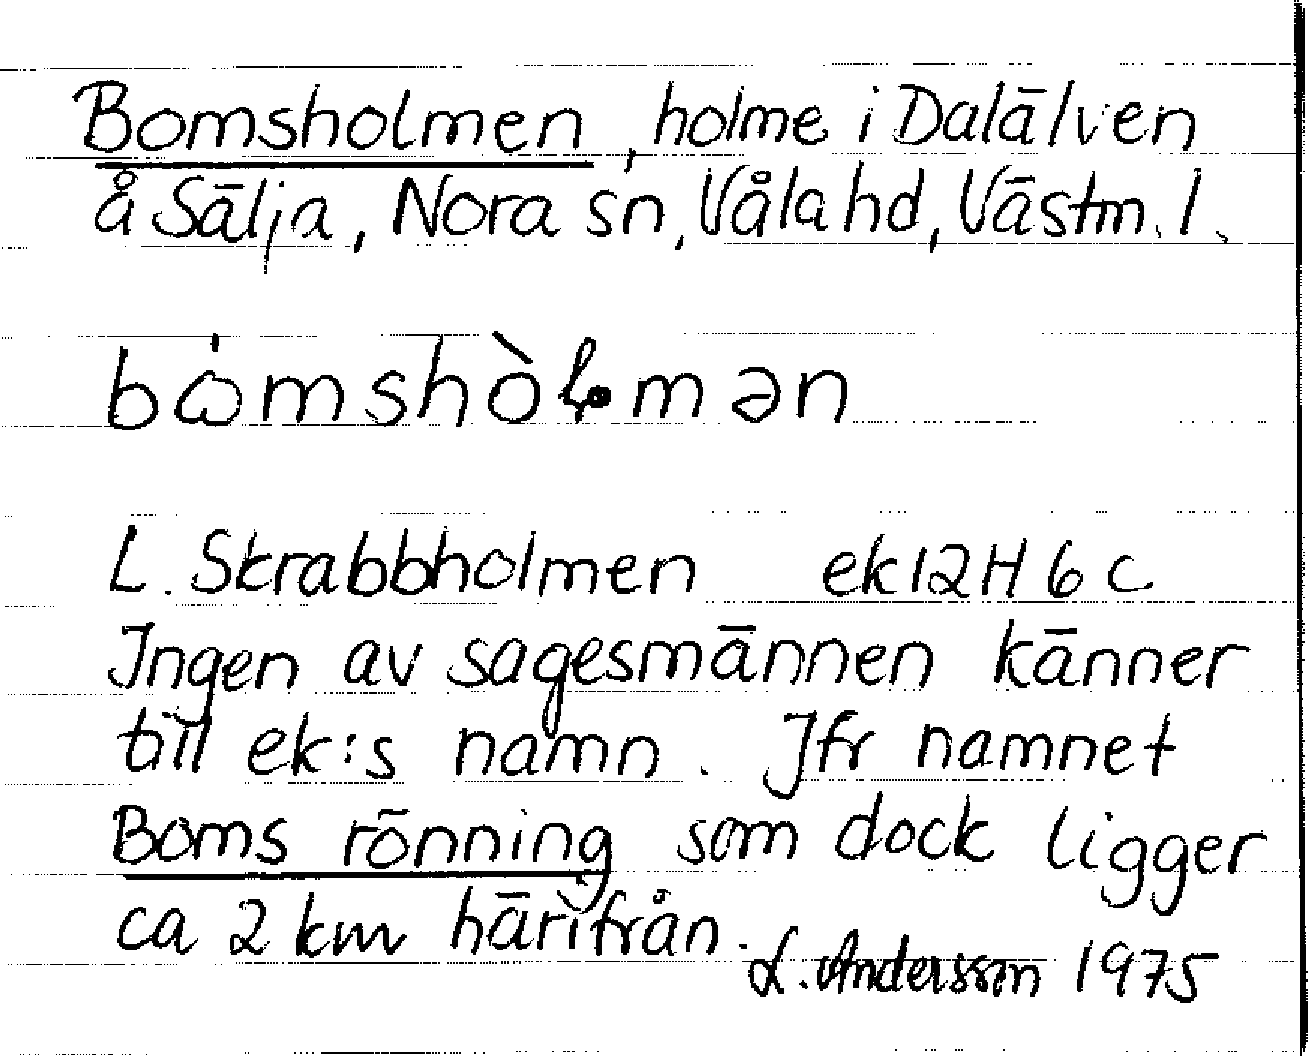 Bomsholmen, holme i Dalälven
å Sälja, Nora sn, Våla hd, Västm. l.
L. Skrabbholmen ek 12H 6 c
Ingen av sagesmännen känner
till ek:s namn. Jfr namnet
Boms rönning som dock ligger
ca 2 km härifrån.
L. Andersson 1975